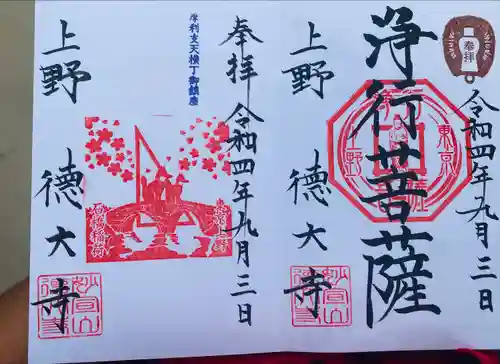 奉拝
令和四年九月三日
浄行菩薩
東京
上野
徳大寺
摩利支天横丁御鎮座
奉拝
令和四年九月三日
上野
徳大寺